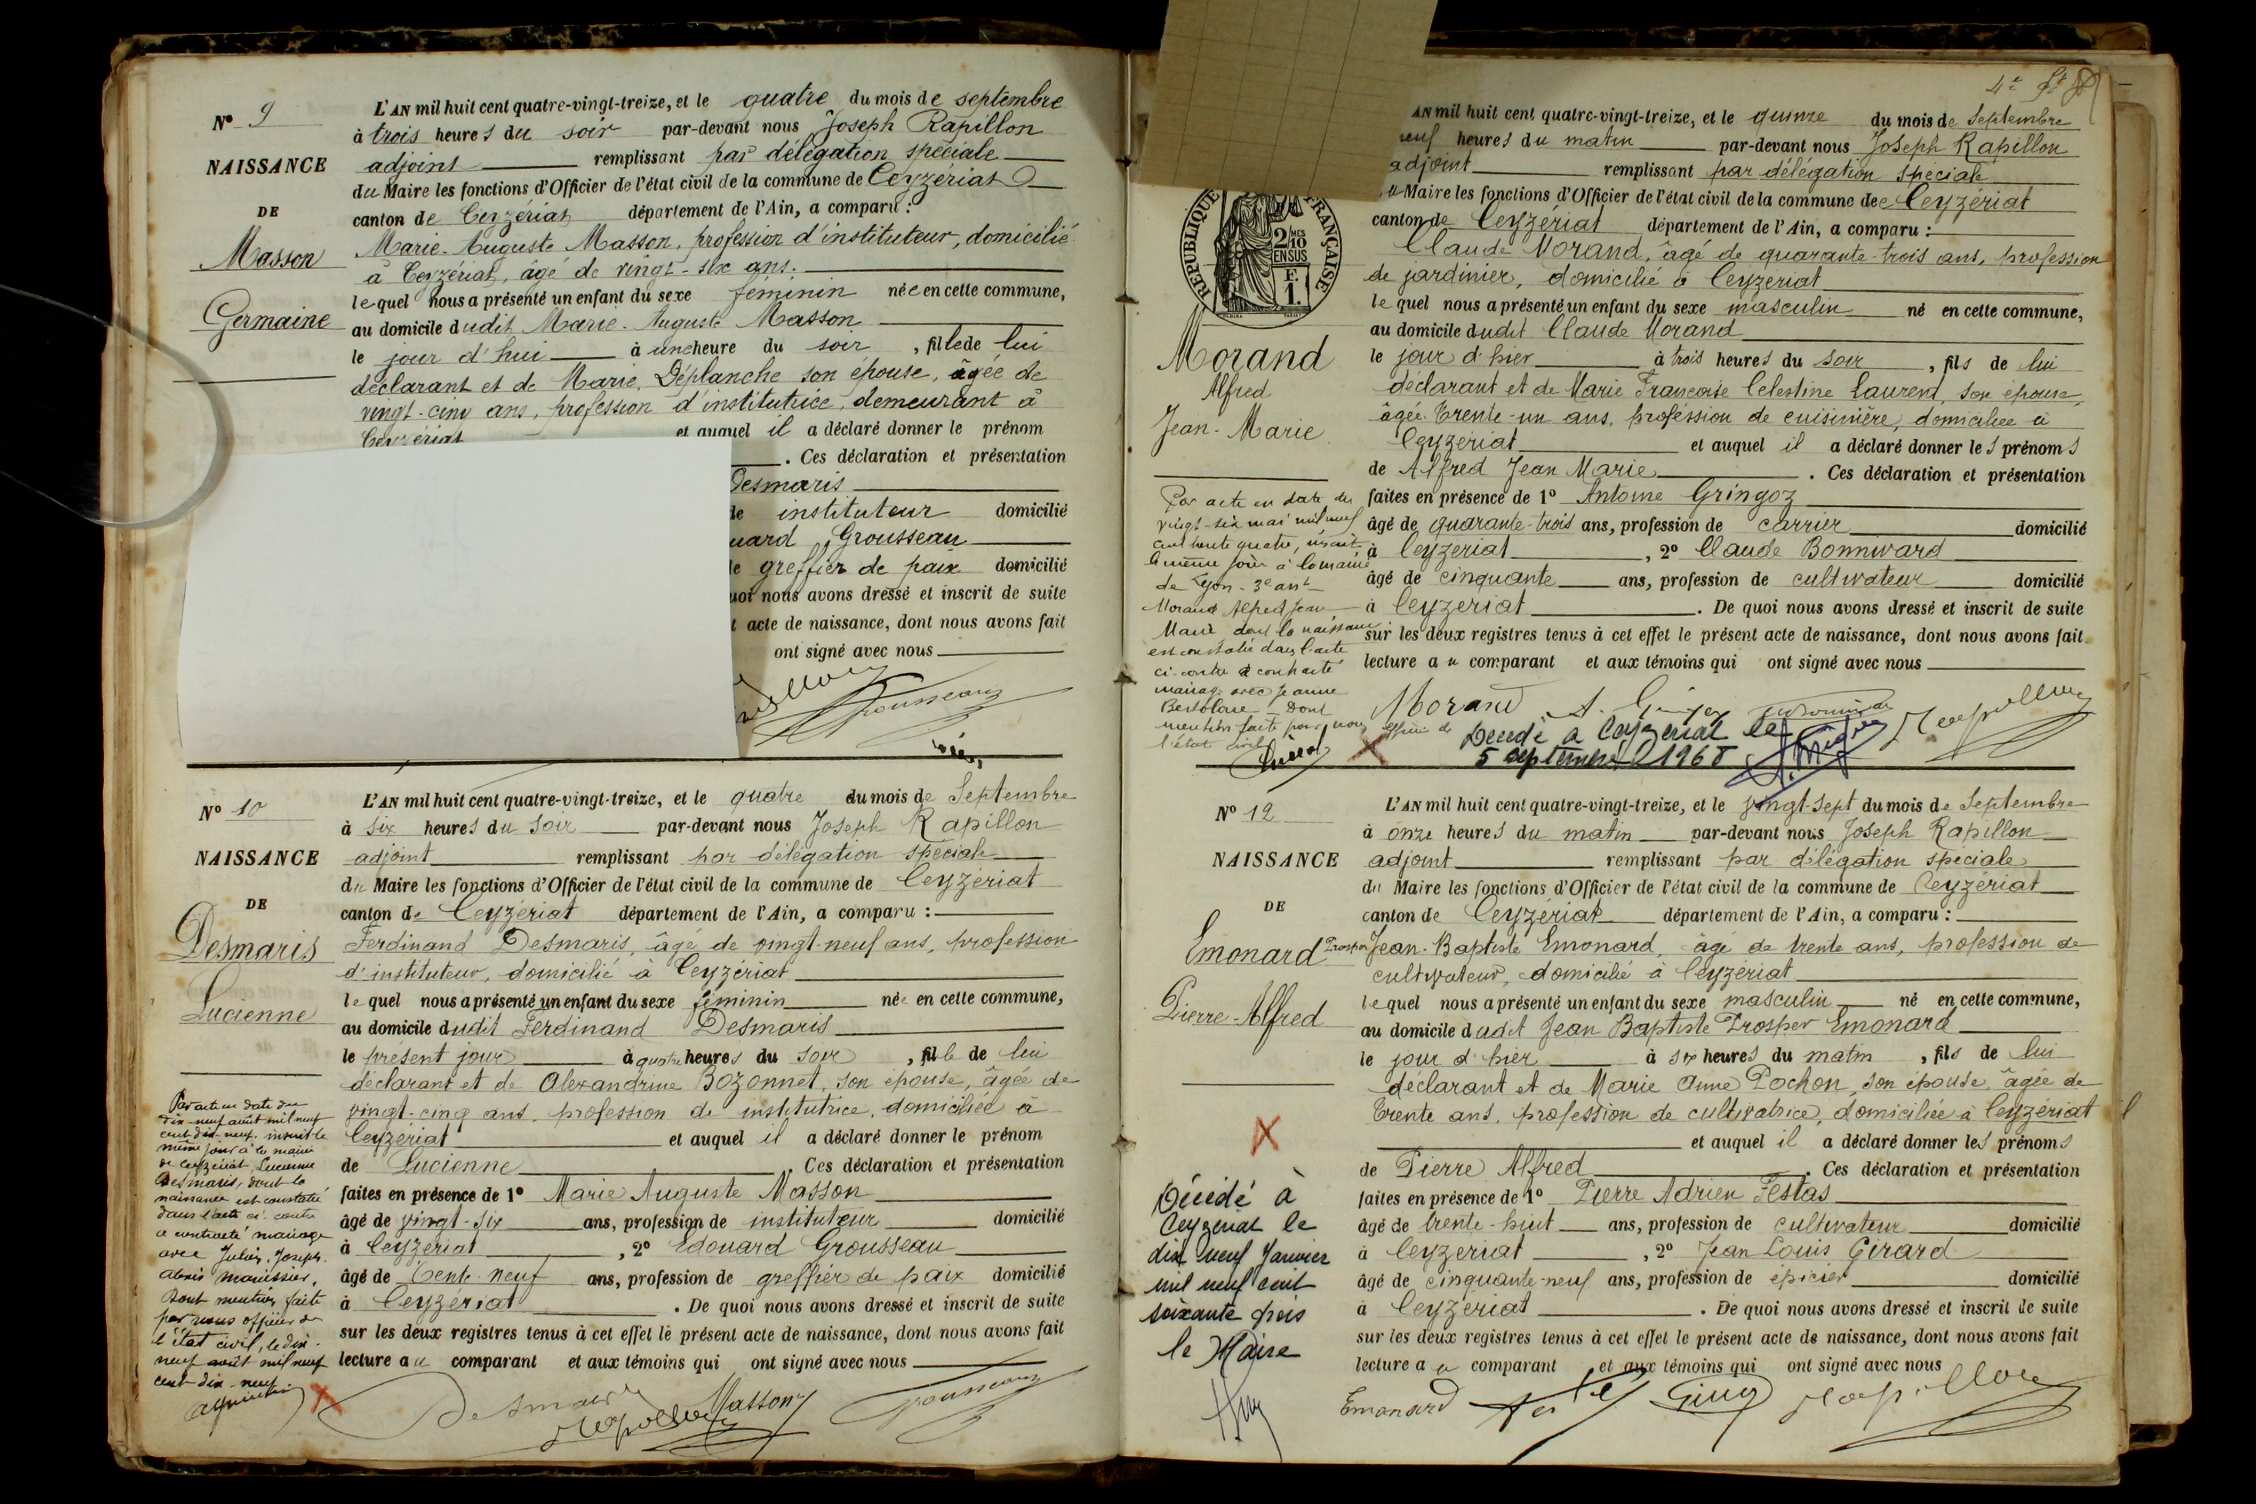 N° 9
NAISSANCE
DE
Masson
Germaine
L'AN mil huit cent quatre-vingt-treize, et le quatre du mois de septembre
à trois heures du soir par-devant nous Joseph Rapillon
adjoint remplissant par délégation spéciale
du Maire les fonctions d'Officier de l'état civil de la commune de Ceyzériat
canton de Ceyzériat département de l'Ain, a comparu :
Marie-Auguste Masson, profession d'instituteur, domicilié
à Ceyzériat, âgé de vingt-six ans.
lequel nous a présenté un enfant du sexe féminin née en cette commune,
au domicile dudit Marie-Auguste Masson
le jour d'hui à une heure du soir, fille de lui
déclarant et de Marie Déplanche son épouse, âgée de
vingt-cinq ans, profession d'institutrice, demeurant à
Ceyzériat et auquel il a déclaré donner le prénom
. Ces déclaration et présentation
Desmaris
de instituteur domicilié
uard Grousseau
de greffier de paix domicilié
uoi nous avons dressé et inscrit de suite
t acte de naissance, dont nous avons fait
ont signé avec nous
Grousseau
N° 10
NAISSANCE
DE
Desmaris
Lucienne
L'AN mil huit cent quatre-vingt-treize, et le quatre du mois de Septembre
à six heures du soir par-devant nous Joseph Rapillon
adjoint remplissant par délégation spéciale
du Maire les fonctions d'Officier de l'état civil de la commune de Ceyzériat
canton de Ceyzériat département de l'Ain, a comparu :
Ferdinand Desmaris, âgé de vingt-neuf ans, profession
d'instituteur, domicilié à Ceyzériat
lequel nous a présenté un enfant du sexe féminin née en cette commune,
au domicile dudit Ferdinand Desmaris
le présent jour à quatre heures du soir, fille de lui
déclarant et de Alexandrine Bozonnet, son épouse, âgée de
vingt-cinq ans, profession de institutrice, domiciliée à
Ceyzériat et auquel il a déclaré donner le prénom
de Lucienne . Ces déclaration et présentation
faites en présence de 1° Marie Auguste Masson
âgé de vingt-six ans, profession de instituteur domicilié
à Ceyzériat , 2° Edouard Grousseau
âgé de trente-neuf ans, profession de greffier de paix domicilié
à Ceyzériat . De quoi nous avons dressé et inscrit de suite
sur les deux registres tenus à cet effet le présent acte de naissance, dont nous avons fait
lecture au comparant et aux témoins qui ont signé avec nous
Par acte en date du
dix-neuf août mil neuf
cent dix-neuf, inscrit le
même jour à la mairie
de Ceyzériat, Lucienne
Desmaris, dont la
naissance est constatée
dans l'acte ci-contre
a contracté mariage
avec Julien Joseph
Manissier,
Dont mention faite
par nous officier de
l'état civil, le dix-
neuf août mil neuf
cent dix-neuf
Desmaris Masson Grousseau
Rapillon
4e
RÉPUBLIQUE FRANÇAISE
2/10 MES
EN SUS
F.
1.
Morand
Alfred
Jean-Marie
AN mil huit cent quatre-vingt-treize, et le quinze du mois de Septembre
neuf heures du matin par-devant nous Joseph Rapillon
adjoint remplissant par délégation spéciale
du Maire les fonctions d'Officier de l'état civil de la commune de Ceyzériat
canton de Ceyzériat département de l'Ain, a comparu :
Claude Morand, âgé de quarante-trois ans, profession
de jardinier, domicilié à Ceyzériat
lequel nous a présenté un enfant du sexe masculin né en cette commune,
au domicile dudit Claude Morand
le jour d'hier à trois heures du soir, fils de lui
déclarant et de Marie Françoise Celestine Laurent, son épouse,
âgée trente-un ans, profession de cuisinière, domiciliée à
Ceyzériat et auquel il a déclaré donner les prénoms
de Alfred Jean Marie . Ces déclaration et présentation
faites en présence de 1° Antoine Gringoz
âgé de quarante-trois ans, profession de carrier domicilié
à Ceyzériat , 2° Claude Bonnivard
âgé de cinquante ans, profession de cultivateur domicilié
à Ceyzériat . De quoi nous avons dressé et inscrit de suite
sur les deux registres tenus à cet effet le présent acte de naissance, dont nous avons fait
lecture au comparant et aux témoins qui ont signé avec nous
Par acte en date du
vingt-six mai mil neuf
cent trente quatre, inscrit
le même jour à la mairie
de Lyon-3e arrt
Morand Alfred Jean
Marie dont la naissance
est constatée dans l'acte
ci-contre a contracté
mariage avec Jeanne
Dont
mention faite par nous officier de
l'état civil
Morand Rapillon
Décédé à Ceyzériat le
5 septembre 1968
N° 12
NAISSANCE
DE
Emonard
Pierre-Alfred
L'AN mil huit cent quatre-vingt-treize, et le vingt-sept du mois de Septembre
à onze heures du matin par-devant nous Joseph Rapillon
adjoint remplissant par délégation spéciale
du Maire les fonctions d'Officier de l'état civil de la commune de Ceyzériat
canton de Ceyzériat département de l'Ain, a comparu :
Prosper Jean-Baptiste Emonard, âgé de trente ans, profession de
cultivateur, domicilié à Ceyzériat
lequel nous a présenté un enfant du sexe masculin né en cette commune,
au domicile dudit Jean Baptiste Prosper Emonard
le jour d'hier à six heures du matin, fils de lui
déclarant et de Marie Anne Pochon, son épouse, âgée de
trente ans, profession de cultivatrice, domiciliée à Ceyzériat
et auquel il a déclaré donner les prénoms
de Pierre Alfred . Ces déclaration et présentation
faites en présence de 1° Pierre Adrien Festas
âgé de trente-huit ans, profession de cultivateur domicilié
à Ceyzériat , 2° Jean Louis Girard
âgé de cinquante-neuf ans, profession de épicier domicilié
à Ceyzériat . De quoi nous avons dressé et inscrit de suite
sur les deux registres tenus à cet effet le présent acte de naissance, dont nous avons fait
lecture au comparant et aux témoins qui ont signé avec nous
Décédé à
Ceyzériat le
dix neuf Janvier
mil neuf cent
soixante trois
le Maire
Emonard Rapillon